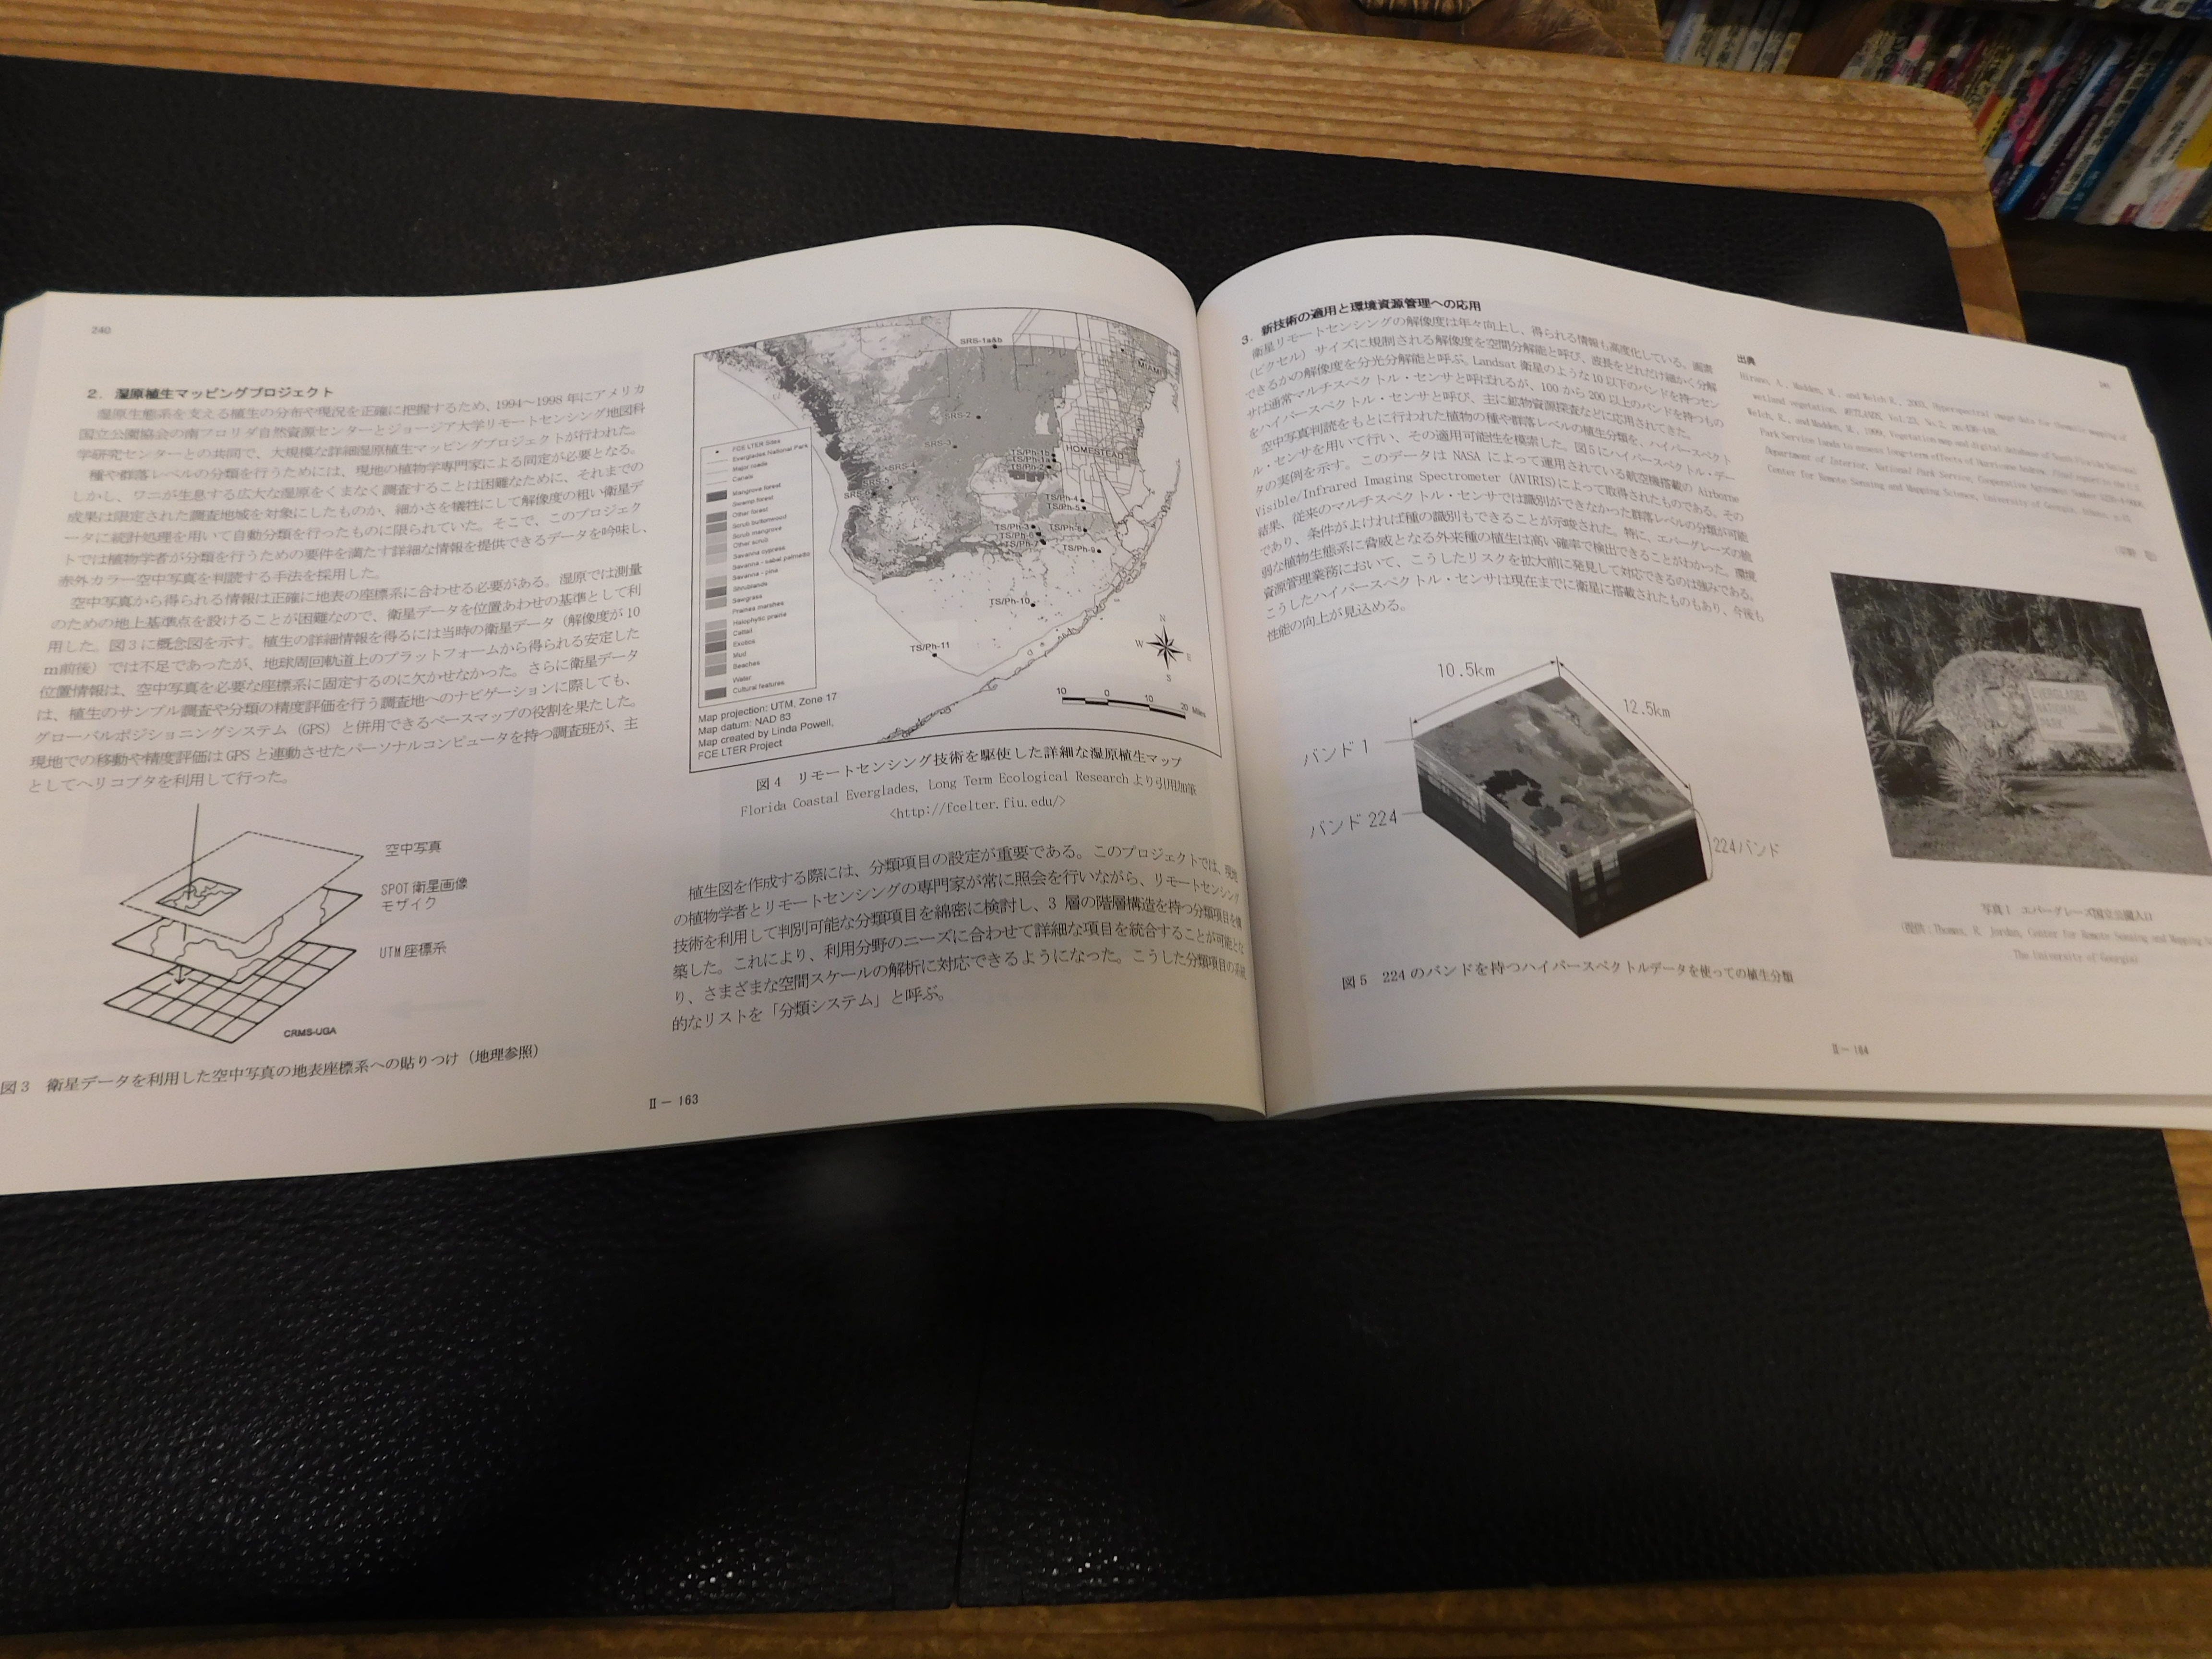 240
2. 湿原植生マッピングプロジェクト
湿原生態系を支える植生の分布や現況を正確に把握するため、1994～1998年にアメリカ
国立公園協会の南フロリダ自然資源センターとジョージア大学リモートセンシング地図科
学研究センターとの共同で、大規模な詳細湿原植生マッピングプロジェクトが行われた。
種や群落レベルの分類を行うためには、現地の植物学専門家による同定が必要となる。
しかし、ワニが生息する広大な湿原をくまなく調査することは困難なために、それまでの
成果は限定された調査地域を対象にしたものか、細かさを犠牲にして解像度の粗い衛星デ
ータに統計処理を用いて自動分類を行ったものに限られていた。そこで、このプロジェク
トでは植物学者が分類を行うための要件を満たす詳細な情報を提供できるデータを吟味し、
赤外カラー空中写真を判読する手法を採用した。
空中写真から得られる情報は正確に地表の座標系に合わせる必要がある。湿原では測量
のための地上基準点を設けることが困難なので、衛星データを位置あわせの基準として利
用した。図3に概念図を示す。植生の詳細情報を得るには当時の衛星データ（解像度が10
m前後）では不足であったが、地球周回軌道上のプラットフォームから得られる安定した
位置情報は、空中写真を必要な座標系に固定するのに欠かせなかった。さらに衛星データ
は、植生のサンプル調査や分類の精度評価を行う調査地へのナビゲーションに際しても、
グローバルポジショニングシステム（GPS）と併用できるベースマップの役割を果たした。
現地での移動や精度評価はGPSと連動させたパーソナルコンピュータを持つ調査班が、主
としてヘリコプタを利用して行った。
空中写真
SPOT衛星画像
モザイク
UTM座標系
CRMS-UGA
図3 衛星データを利用した空中写真の地表座標系への貼りつけ（地理参照）
SRS-1a&b
MIAMI
SRS-2
SRS-3
HOMESTEAD
SRS-4
SRS-5
SRS-6
TS/Ph-1b
TS/Ph-1a
TS/Ph-2
TS/Ph-4
TS/Ph-5
TS/Ph-3
TS/Ph-8
TS/Ph-6
TS/Ph-7
TS/Ph-9
TS/Ph-10
TS/Ph-11
FCE LTER Sites
Everglades National Park
Major roads
Canals
Mangrove forest
Swamp forest
Other forest
Scrub buttonwood
Scrub mangrove
Other scrub
Savanna cypress
Savanna - sabal palmetto
Savanna - pine
Shrublands
Sawgrass
Prairies marshes
Halophytic prairie
Cattail
Exotics
Mud
Beaches
Water
Cultural features
N
W E
S
10 0 10 20 Miles
Map projection: UTM, Zone 17
Map datum: NAD 83
Map created by Linda Powell,
FCE LTER Project
図4 リモートセンシング技術を駆使した詳細な湿原植生マップ
Florida Coastal Everglades, Long Term Ecological Research より引用加筆
<http://fcelter.fiu.edu/>
植生図を作成する際には、分類項目の設定が重要である。このプロジェクトでは、現地
の植物学者とリモートセンシングの専門家が常に照会を行いながら、リモートセンシング
技術を利用して判別可能な分類項目を綿密に検討し、3 層の階層構造を持つ分類項目を構
築した。これにより、利用分野のニーズに合わせて詳細な項目を統合することが可能とな
り、さまざまな空間スケールの解析に対応できるようになった。こうした分類項目の系統
的なリストを「分類システム」と呼ぶ。
Ⅱ－163
3. 新技術の適用と環境資源管理への応用
衛星リモートセンシングの解像度は年々向上し、得られる情報も高度化している。画素
（ピクセル）サイズに規制される解像度を空間分解能と呼び、波長をどれだけ細かく分解
できるかの解像度を分光分解能と呼ぶ。Landsat衛星のような10以下のバンドを持つセン
サは通常マルチスペクトル・センサと呼ばれるが、100から200以上のバンドを持つもの
をハイパースペクトル・センサと呼び、主に鉱物資源探査などに応用されてきた。
空中写真判読をもとに行われた植物の種や群落レベルの植生分類を、ハイパースペクト
ル・センサを用いて行い、その適用可能性を模索した。図5にハイパースペクトル・デー
タの実例を示す。このデータは NASA によって運用されている航空機搭載の Airborne
Visible/Infrared Imaging Spectrometer (AVIRIS)によって取得されたものである。その
結果、従来のマルチスペクトル・センサでは識別ができなかった群落レベルの分類が可能
であり、条件がよければ種の識別もできることが示唆された。特に、エバーグレーズの脆
弱な植物生態系に脅威となる外来種の植生は高い確率で検出できることがわかった。環境
資源管理業務において、こうしたリスクを拡大前に発見して対応できるのは強みである。
こうしたハイパースペクトル・センサは現在までに衛星に搭載されたものもあり、今後も
性能の向上が見込める。
10.5km
12.5km
バンド1
バンド224
224バンド
図5 224のバンドを持つハイパースペクトルデータを使っての植生分類
出典
Hirano, A., Madden, M., and Welch R., 2003, Hyperspectral image data for mapping
wetland vegetation, WETLANDS, Vol.23, No.2, pp.436-448.
Welch, R., and Madden, M., 1999, Vegetation map and digital database of South Florida National
Park Service lands to assess long-term effects of Hurricane Andrew.
Department of Interior, National Park Service, Cooperative Agreement Number
Center for Remote Sensing and Mapping Science, University of Georgia, Athens,
EVERGLADES
NATIONAL
PARK
写真1 エバーグレーズ国立公園入口
(提供：Thomas, R. Jordan, Center for Remote Sensing and Mapping
The University of Georgia)
Ⅱ－164